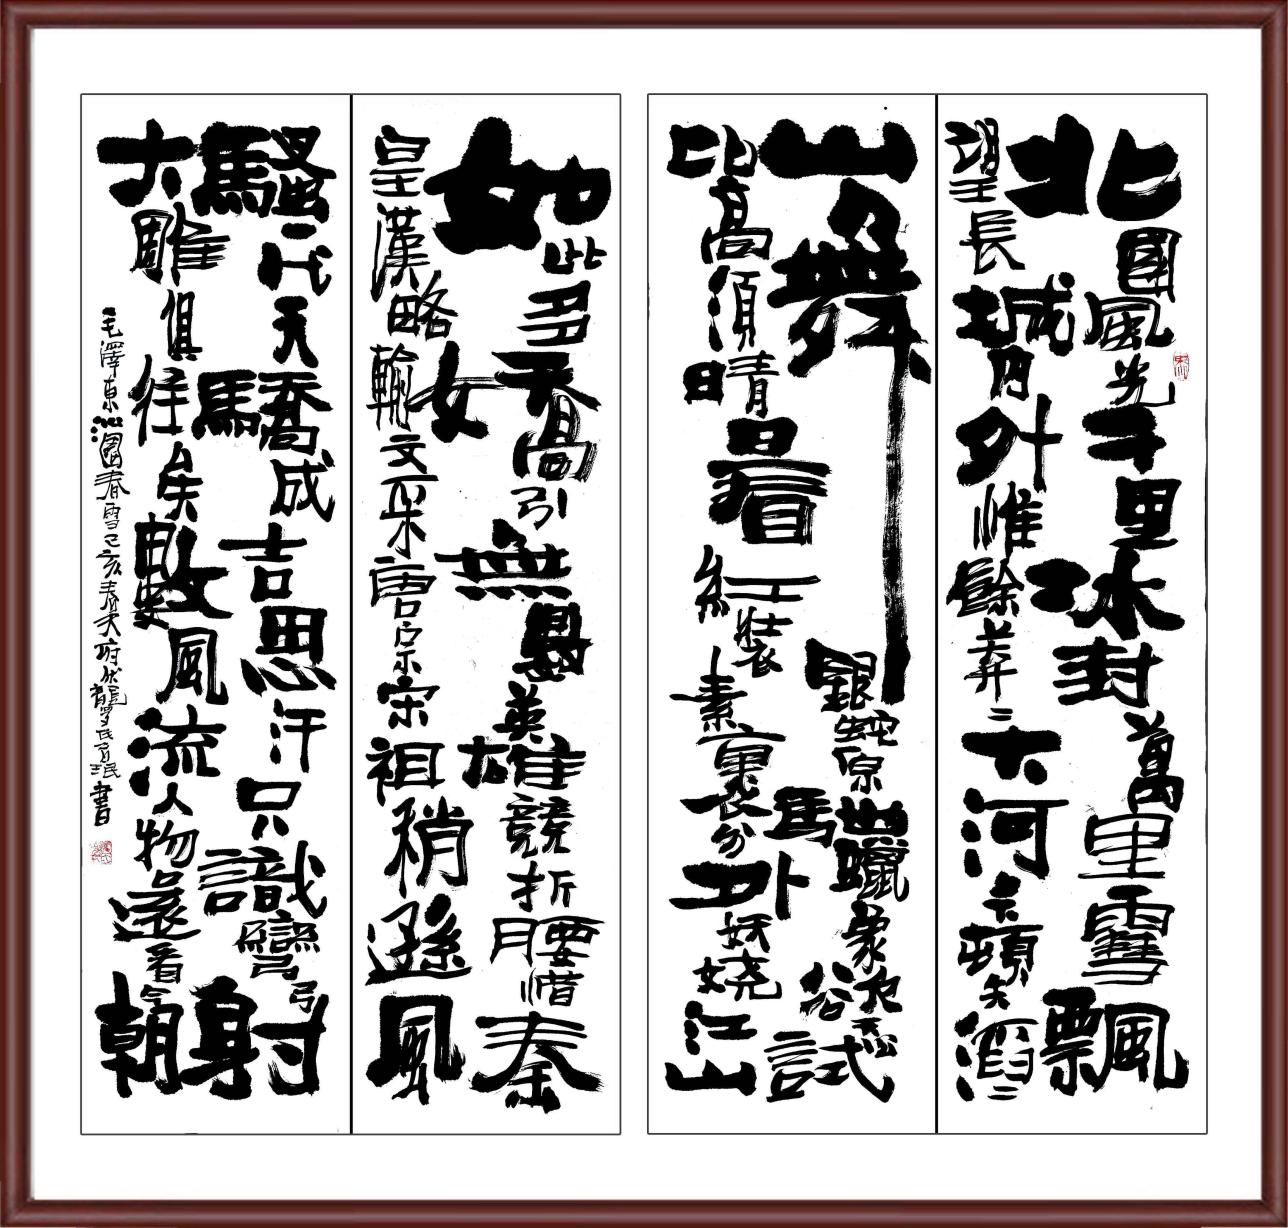 北國風光千里冰封萬里雪飄
望長城内外惟餘莽〻大河上下頓失滔〻
山舞銀蛇原馳蠟象欲與天公試
比高須晴日看紅裝素裹分外妖嬈江山
如此多嬌引無數英雄競折腰惜秦
皇漢略輸文采唐宗宋祖稍遜風
騷一代天驕成吉思汗只識彎弓射
大雕俱往矣數風流人物還看今朝
毛澤東沁園春雪己亥春天府伏龍氏珉書